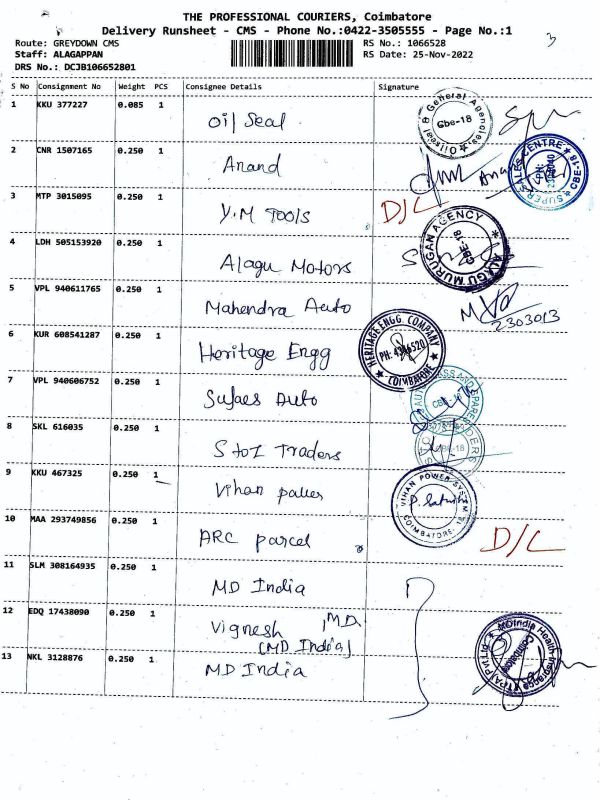 THE PROFESSIONAL COURIERS, Coimbatore
Delivery Runsheet - CMS - Phone No.:0422-3505555 - Page No.:1
3
Route: GREYDOWN CMS
Staff: ALAGAPPAN
DRS No.: DCJB106652801
RS No.: 1066528
RS Date: 25-Nov-2022
S No Consignment No Weight PCS Consignee Details Signature
1 KKU 377227 0.085 1 Oil Seal
Oilseal & General Agencies Cbe-18
2 CNR 1507165 0.250 1 Anand
SUPER SALES CENTRE CBE-18
3 MTP 3015095 0.250 1 Y.M TOOLS D/L
4 LDH 505153920 0.250 1 Alagu Motors
ALAGU MURUGAN AGENCY CBE-18
5 VPL 940611765 0.250 1 Mahendra Auto
2303013
6 KUR 608541287 0.250 1 Heritage Engg
HERITAGE ENGG. COMPANY PH: 4386520 COIMBATORE
7 VPL 940606752 0.250 1 Sujaes Auto
AUTO AND SPARES
8 SKL 616035 0.250 1 S to Z Traders
CBE-18
9 KKU 467325 0.250 1 Vihan
VIHAN POWER SYSTEM COIMBATORE
10 MAA 293749856 0.250 1 ARC parcel D/L
11 SLM 308164935 0.250 1 MD India
12 EDQ 17438090 0.250 1 Vignesh M.D.
(MD India)
13 NKL 3128876 0.250 1 MD India
MDIndia Health Insurance TPA Pvt.Ltd Coimbatore